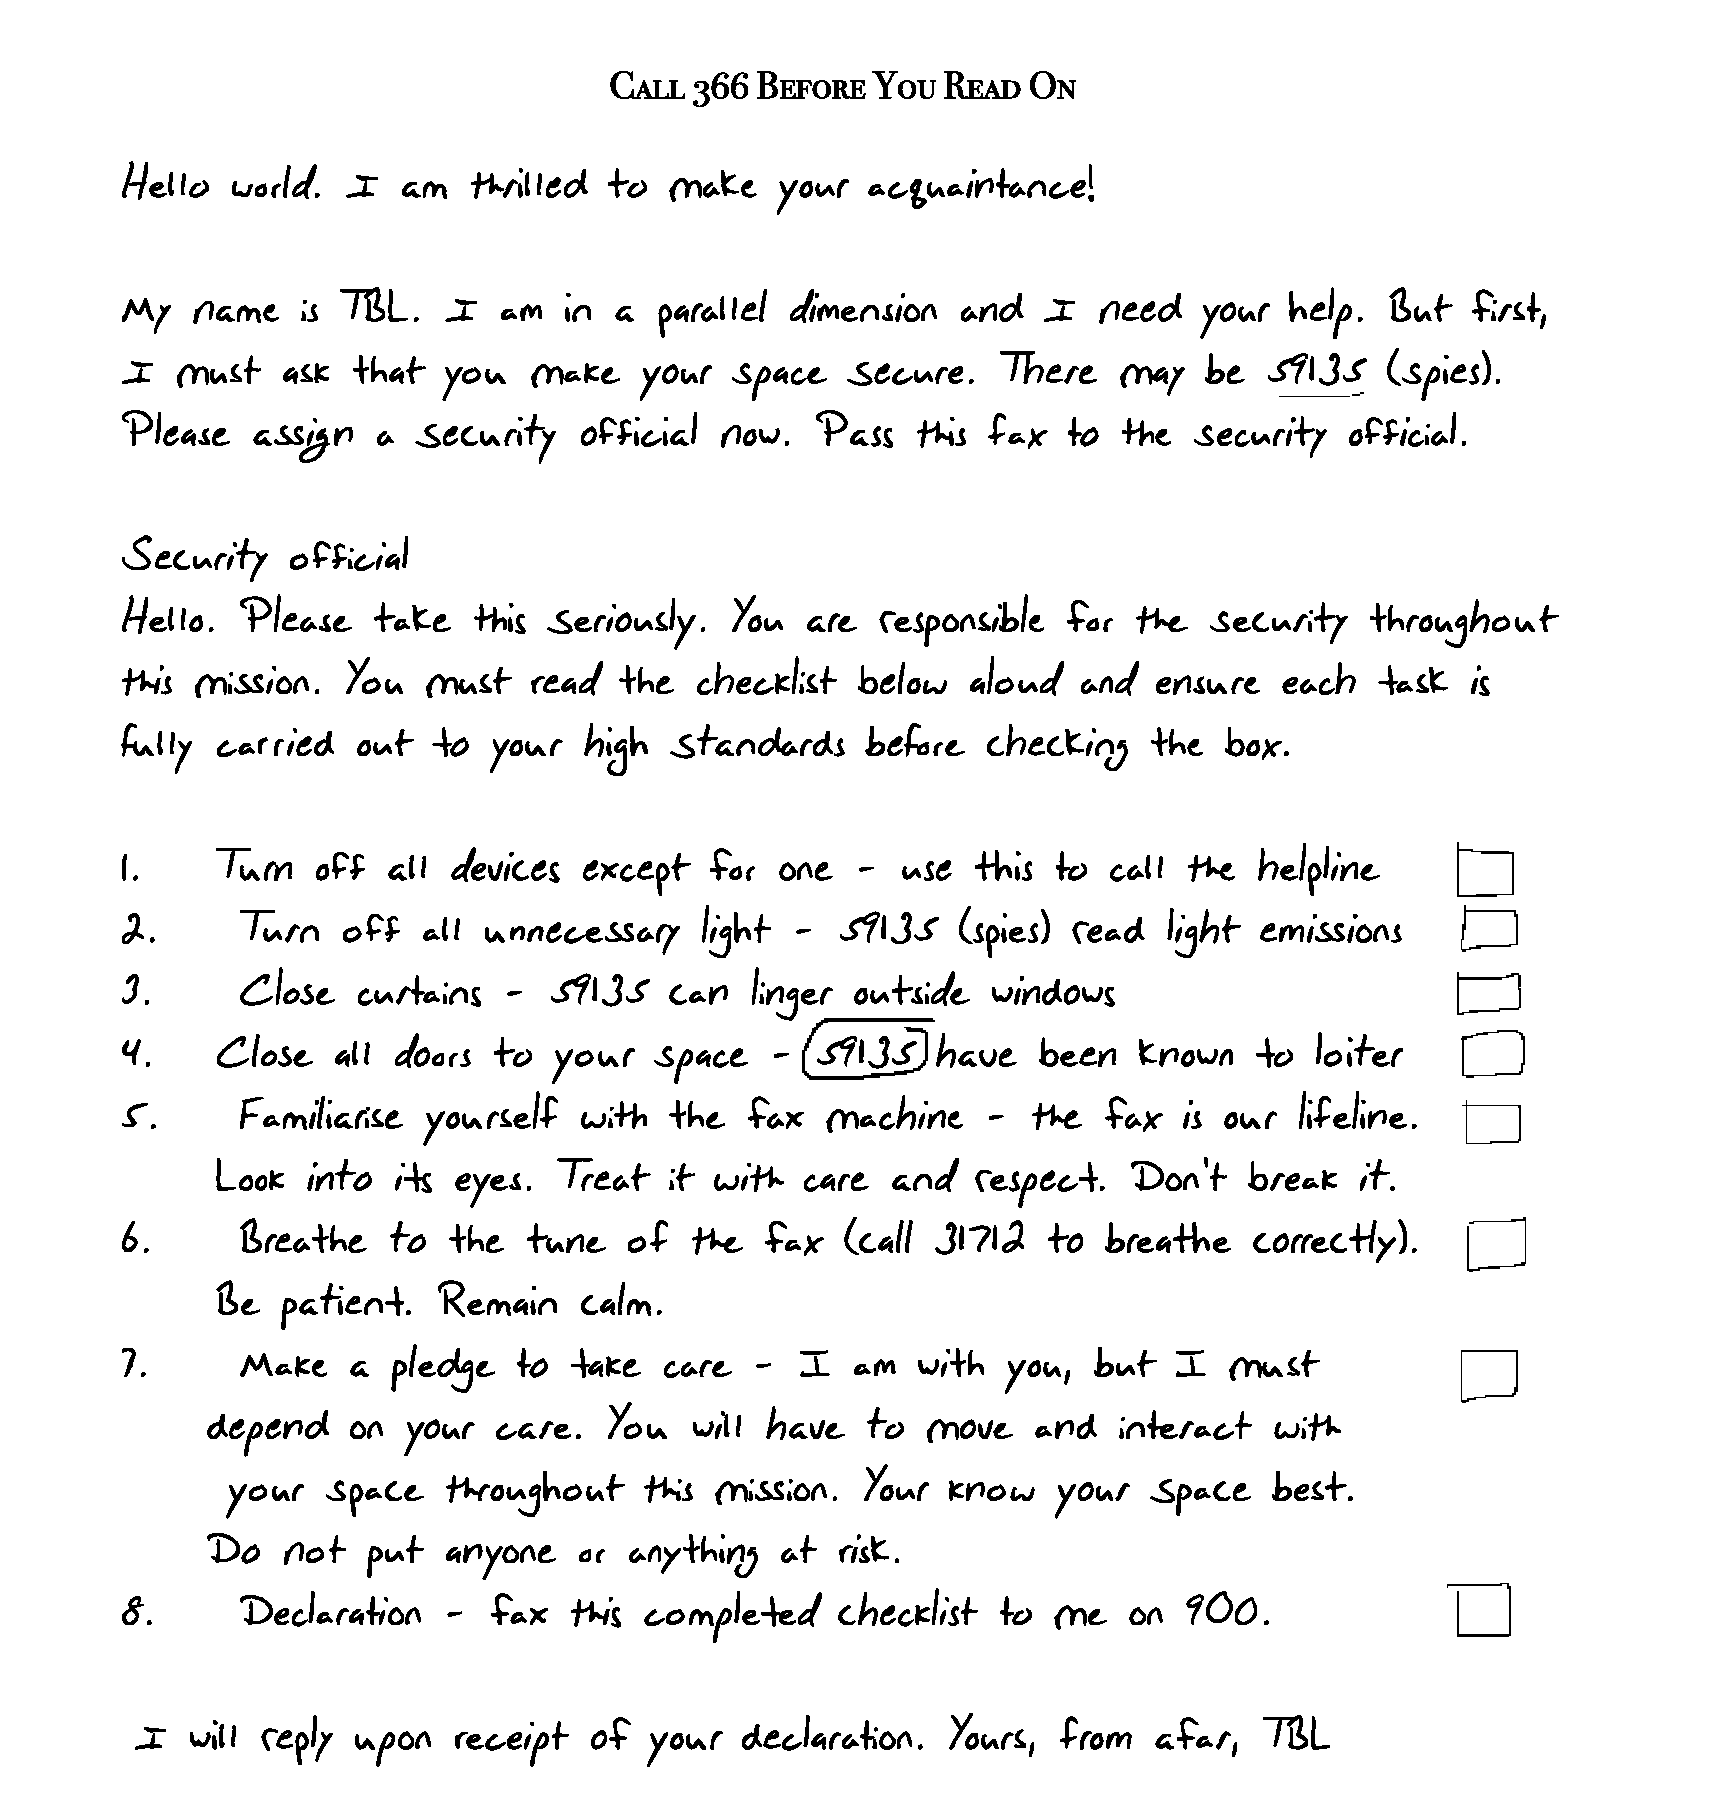 CALL 366 BEFORE YOU READ ON
Hello world. I am thrilled to make your acquaintance!
My name is TBL. I am in a parallel dimension and I need your help. But first,
I must ask that you make your space secure. There may be 59135 (spies).
Please assign a security official now. Pass this fax to the security official.
Security official
Hello. Please take this seriously. You are responsible for the security throughout
this mission. You must read the checklist below aloud and ensure each task is
fully carried out to your high standards before checking the box.
1. Turn off all devices except for one - use this to call the helpline
2. Turn off all unnecessary light - 59135 (spies) read light emissions
3. Close curtains - 59135 can linger outside windows
4. Close all doors to your space - 59135 have been known to loiter
5. Familiarise yourself with the fax machine - the fax is our lifeline.
Look into its eyes. Treat it with care and respect. Don't break it.
6. Breathe to the tune of the fax (call 31712 to breathe correctly).
Be patient. Remain calm.
7. Make a pledge to take care - I am with you, but I must
depend on your care. You will have to move and interact with
your space throughout this mission. Your know your space best.
Do not put anyone or anything at risk.
8. Declaration - fax this completed checklist to me on 900.
I will reply upon receipt of your declaration. Yours, from afar, TBL